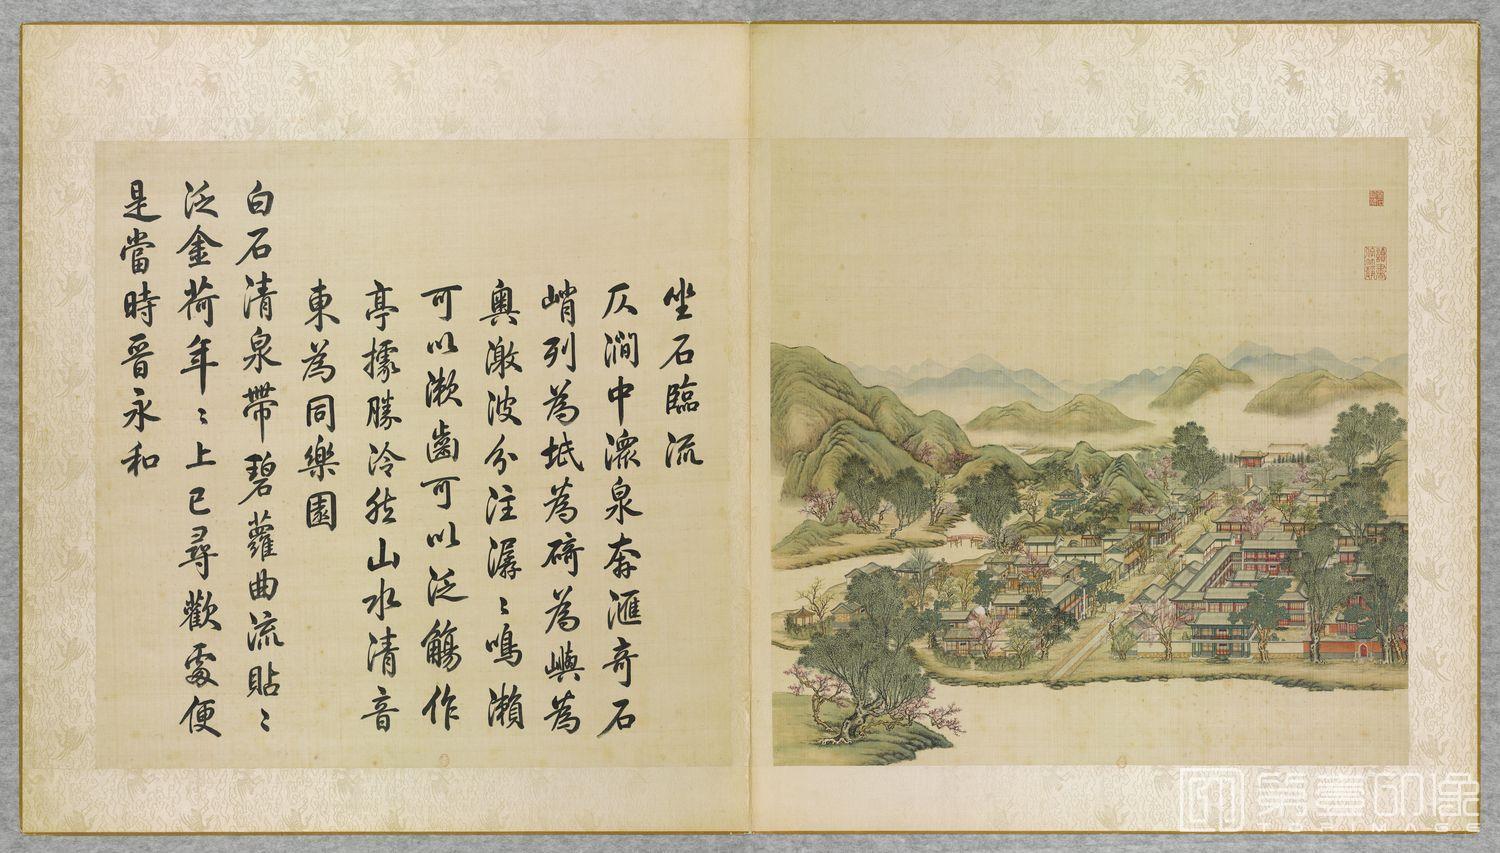 坐石臨流
仄澗中瀠泉奔滙奇石
峭列為坻為碕為嶼為
奥激波分注潺〻鳴瀨
可以漱齒可以泛觴作
亭據勝泠然山水清音
東為同樂園
白石清泉帶碧蘿曲流貼〻
泛金荷年〻上巳尋歡處便
是當時晉永和
第壹印象
TOPIMAGE